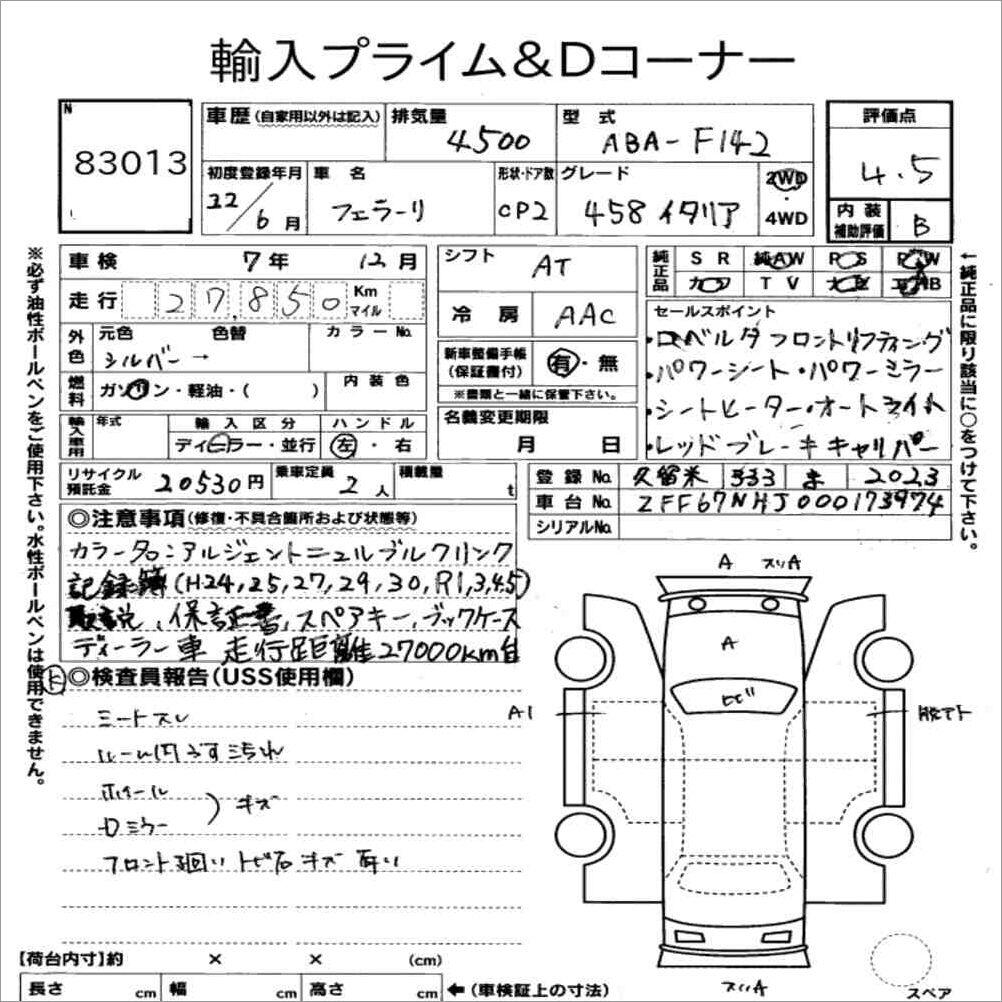 輸入プライム&Dコーナー
N
83013
車歴(自家用以外は記入)
排気量
4500
型式
ABA-F142
評価点
4.5
初度登録年月
22/6月
車名
フェラーリ
形状・ドア数
CP2
グレード
458 イタリア
2WD
・
4WD
内装
補助評価
B
※必ず油性ボールペンをご使用下さい。水性ボールペンは使用できません。
車検 7年 12月
走行 27,850 Km
マイル
外色
元色 色替
シルバー →
カラーNo.
燃料
ガソリン・軽油・( )
内装色
輸入車用
年式
輸入区分
ディーラー・並行
ハンドル
左・右
リサイクル
預託金
20530円
乗車定員
2人
積載量
t
シフト AT
冷房 AAC
新車整備手帳
(保証書付)
有・無
※書類と一緒に保管下さい。
名義変更期限
月 日
純正品
SR 純AW PS PW
カワ TV ナビ エアB
セールスポイント
・ロベルタフロントリフティング
・パワーシート・パワーミラー
・シートヒーター・オートライト
・レッドブレーキキャリパー
←純正品に限り該当に○をつけて下さい。
登録No. 久留米 333 ま 2023
車台No. ZFF67NHJ000173974
シリアルNo.
◎注意事項(修復・不具合箇所および状態等)
カラー740:アルジェントニュルブルクリンク
記録簿(H24,25,27,29,30,R1,3,4,5)
取説、保証書、スペアキー、ブックケース
ディーラー車 走行距離27000km台
◎検査員報告(USS使用欄)
シートスレ
ルーム内うす汚れ
ホイール
Dミラー
)キズ
フロント廻りトビ石キズ有り
A スリA
A
ヒビ
A1
スリA
スペア
【荷台内寸】約 × × (cm)
長さ cm 幅 cm 高さ cm ←(車検証上の寸法)